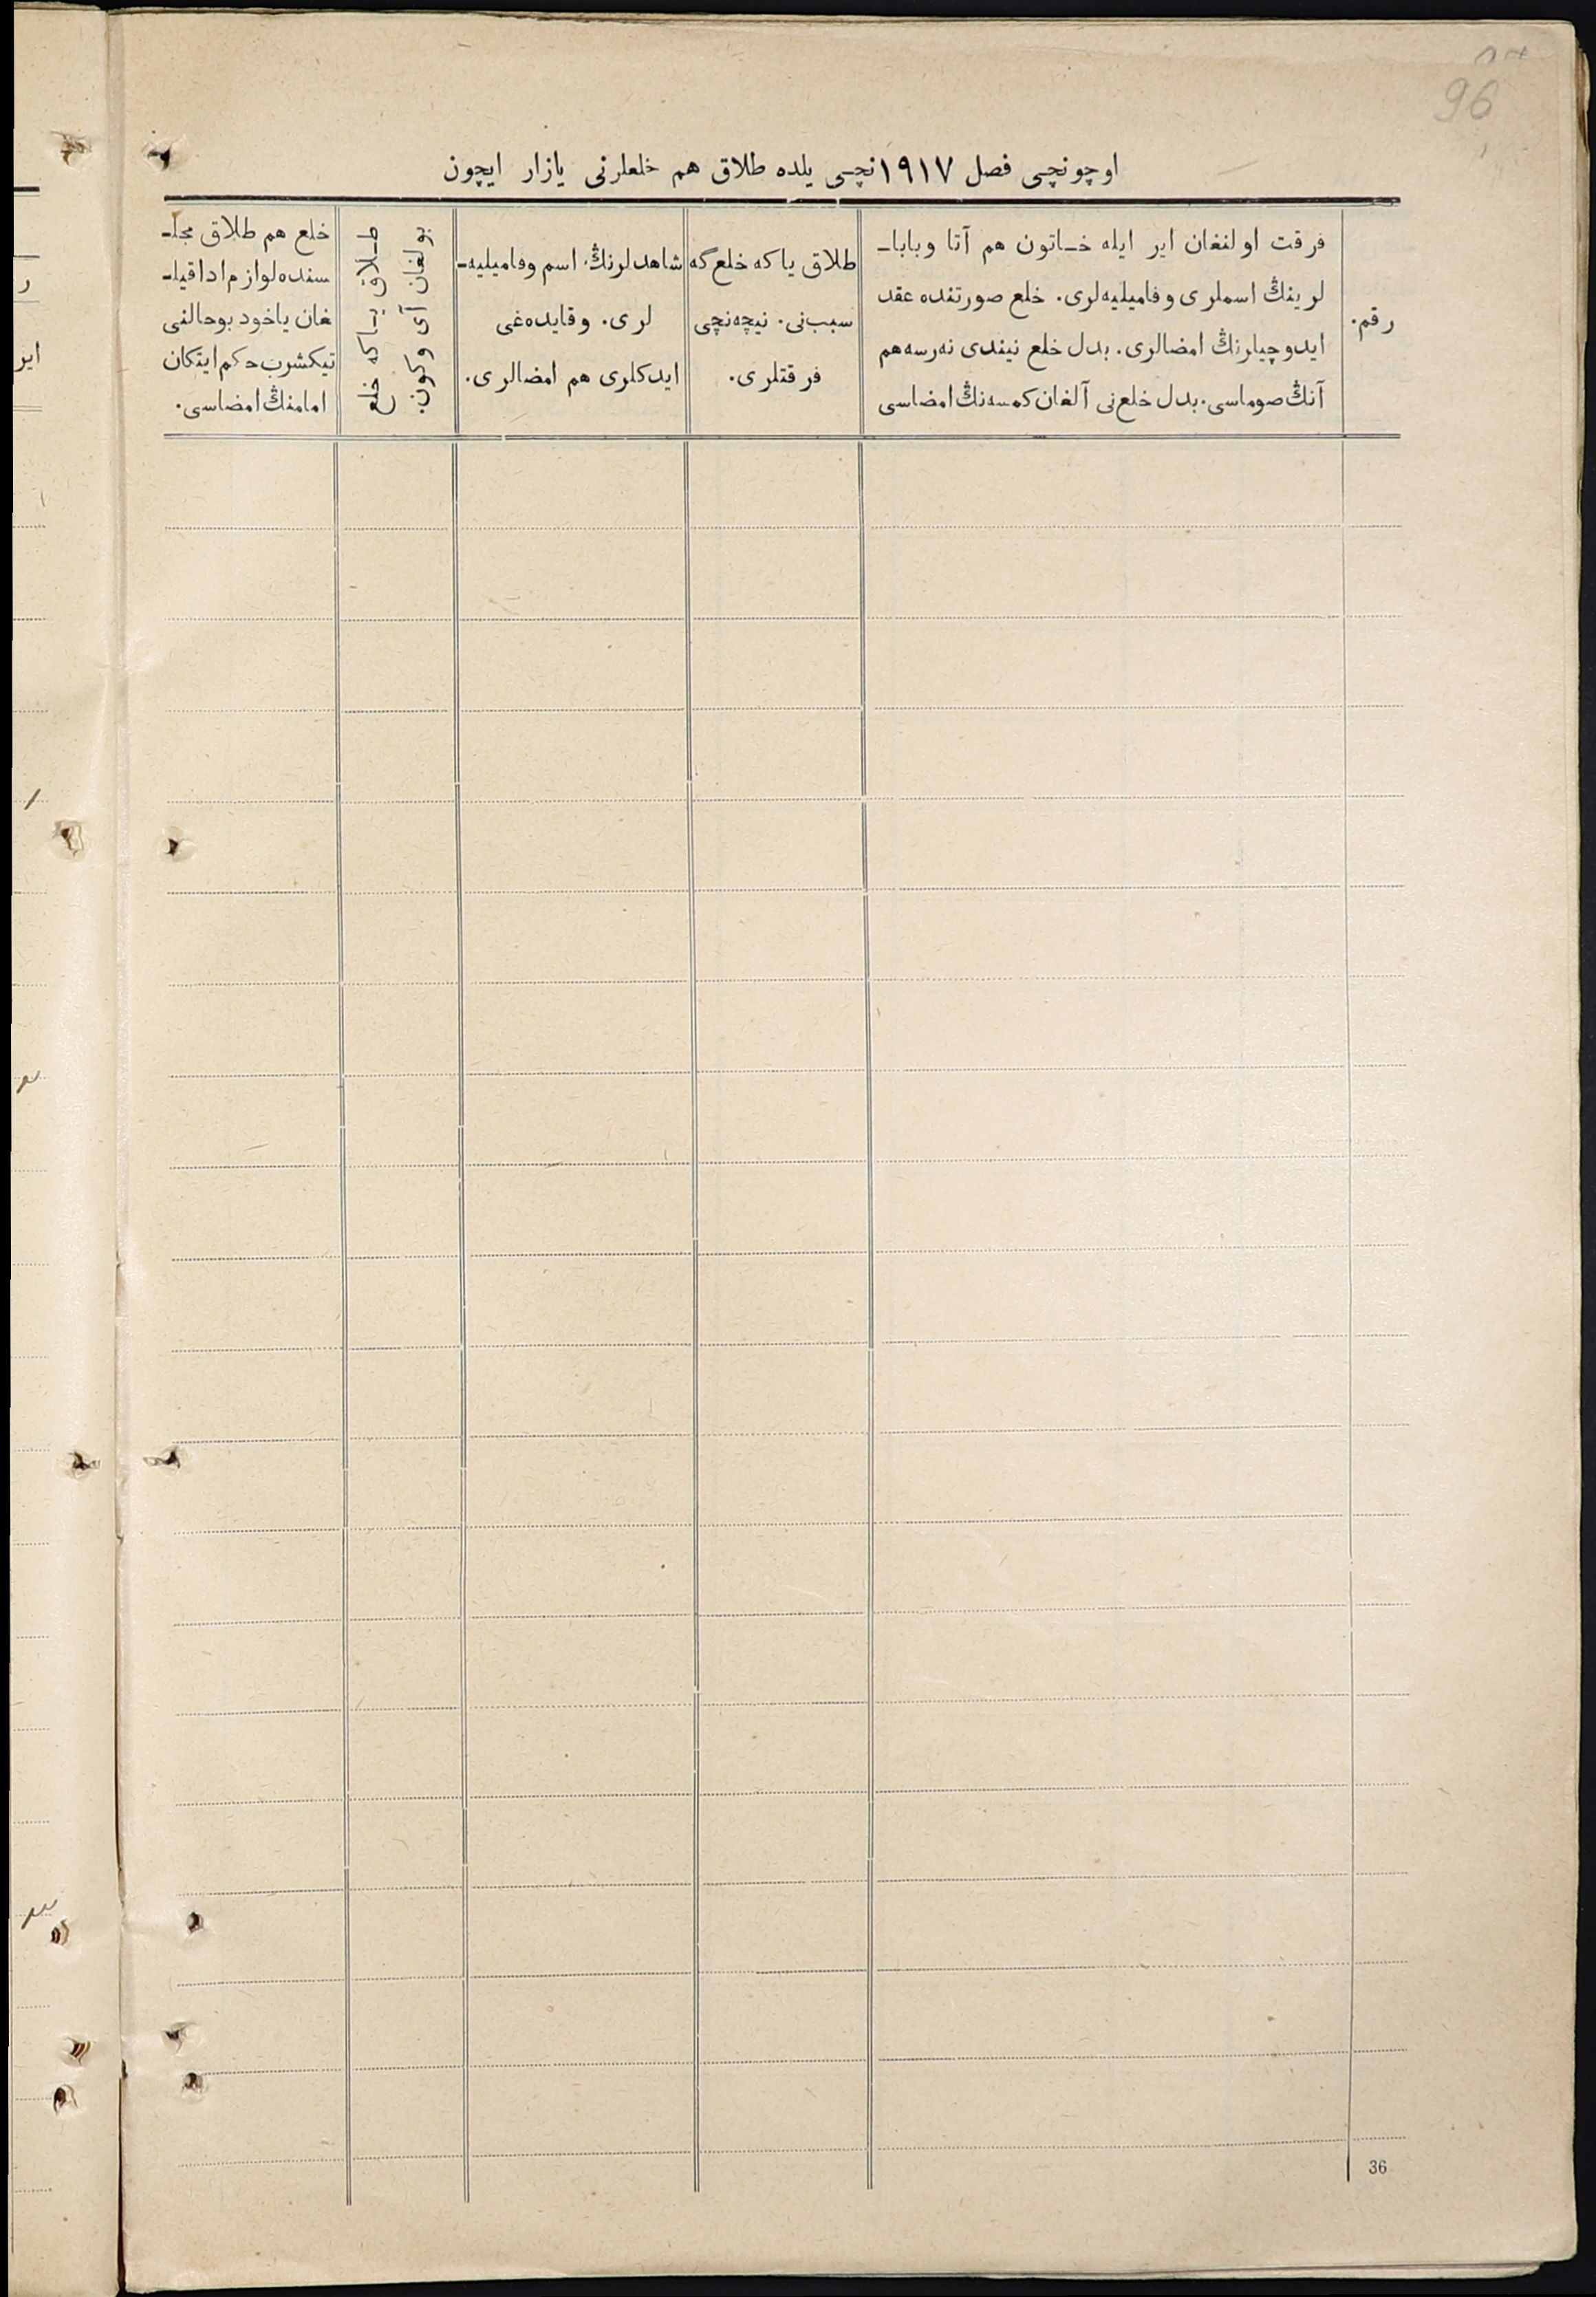 96
اوچونچی فصل ١٩١٧نچی یلده طلاق هم خلعلرنی یازار ایچون
رقم.
فرقت اولنغان ایر ایله خـاتون هم آتا وباباـ
لرینڭ اسملری وفامیلیه‌لری. خلع صورتنده عقد
ایدوچیلرنڭ امضالری. بدل خلع نیندی نه‌رسه هم
آنڭ صوماسی. بدل خلع‌نی آلغان کمسه‌نڭ امضاسی
طلاق یا که خلع گه
سبب‌نی. نیچه‌نچی
فرقتلری.
شاهدلرنڭ اسم وفامیلیه‌ـ
لری. وقایده‌غی
ایدکلری هم امضالری.
طـلاق یـا که خلع
بولغان آی وکون.
خلع هم طلاق مجلـ
سنده لوازم ادا قیلـ
غان یاخود بوحالنی
تیکشرب حکم ایتکان
امامنڭ امضاسی.
36